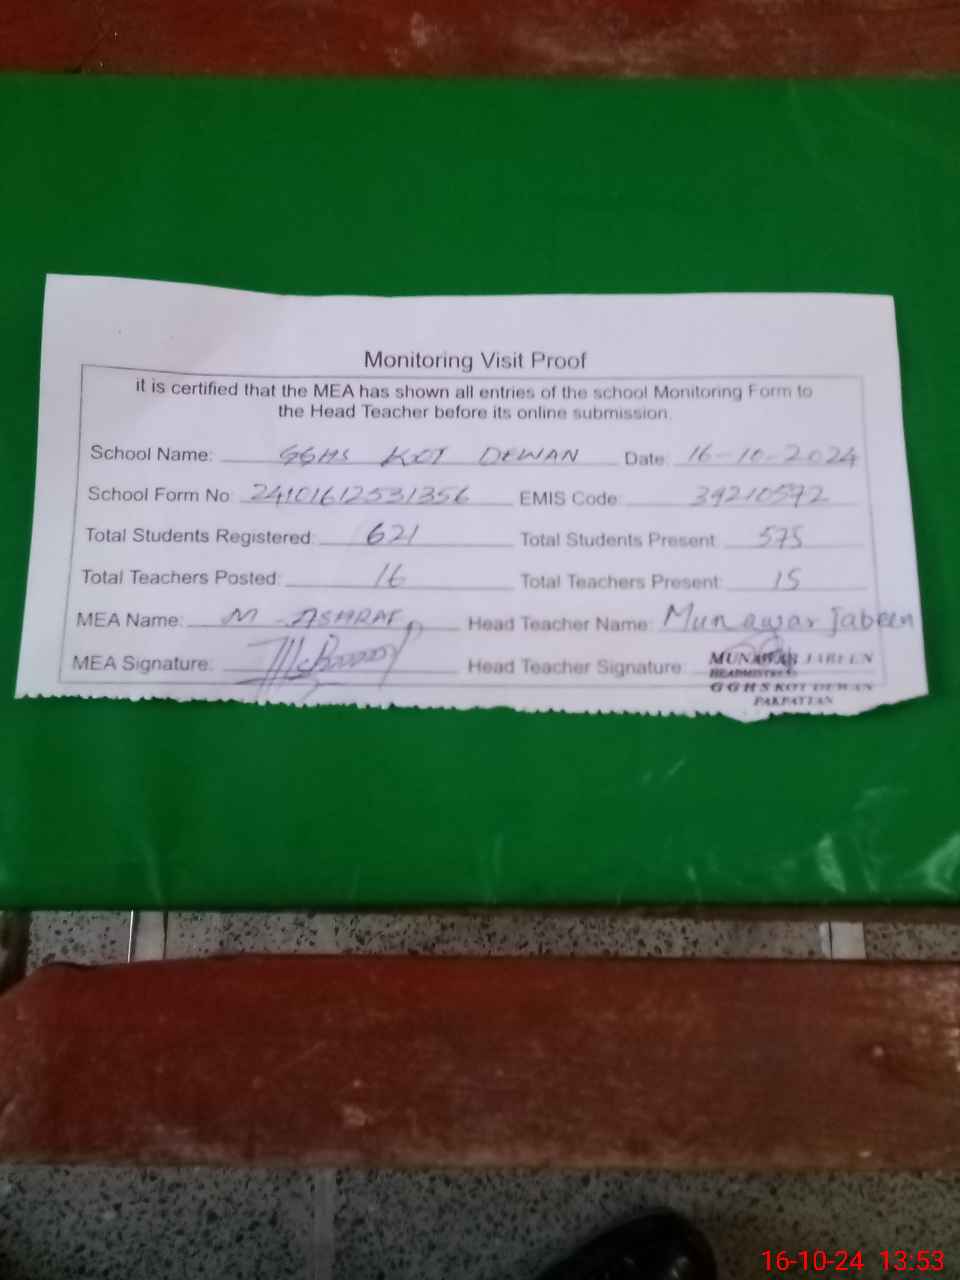 Monitoring Visit Proof
it is certified that the MEA has shown all entries of the school Monitoring Form to
the Head Teacher before its online submission.
School Name: GGHS KOT DEWAN Date: 16-10-2024
School Form No: 24101612531356 EMIS Code: 39210572
Total Students Registered: 621 Total Students Present: 575
Total Teachers Posted: 16 Total Teachers Present: 15
MEA Name: M-ASHRAF Head Teacher Name: Munawar Jabeen
MEA Signature: Head Teacher Signature:
MUNAWAR JABEEN
HEADMISTRESS
GGHS KOT DEWAN
PAKPATTAN
16-10-24 13:53